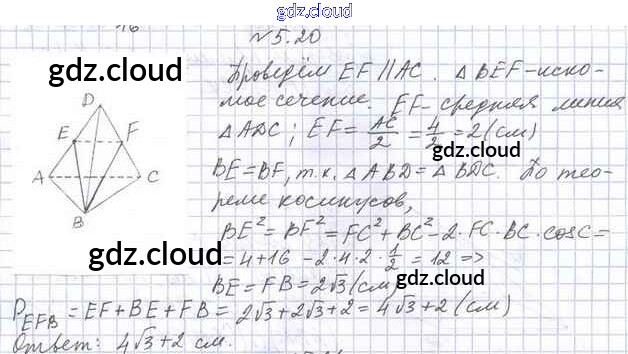 gdz.cloud
16
№5.20
gdz.cloud
Проведём EF || AC. △BEF - иско-
мое сечение. EF - средняя линия
△ADC; EF = AC/2 = 4/2 = 2 (см)
gdz.cloud
BE = BF, т.к. △ABD = △BDC. По тео-
реме косинусов,
BE² = BF² = FC² + BC² - 2·FC·BC·cosC =
= 4 + 16 - 2·4·2·1/2 = 12 =>
BE = FB = 2√3 (см)
D
E
F
A
C
B
gdz.cloud
gdz.cloud
P_EFB = EF + BE + FB = 2√3 + 2√3 + 2 = 4√3 + 2 (см)
Ответ: 4√3 + 2 см.
gdz.cloud